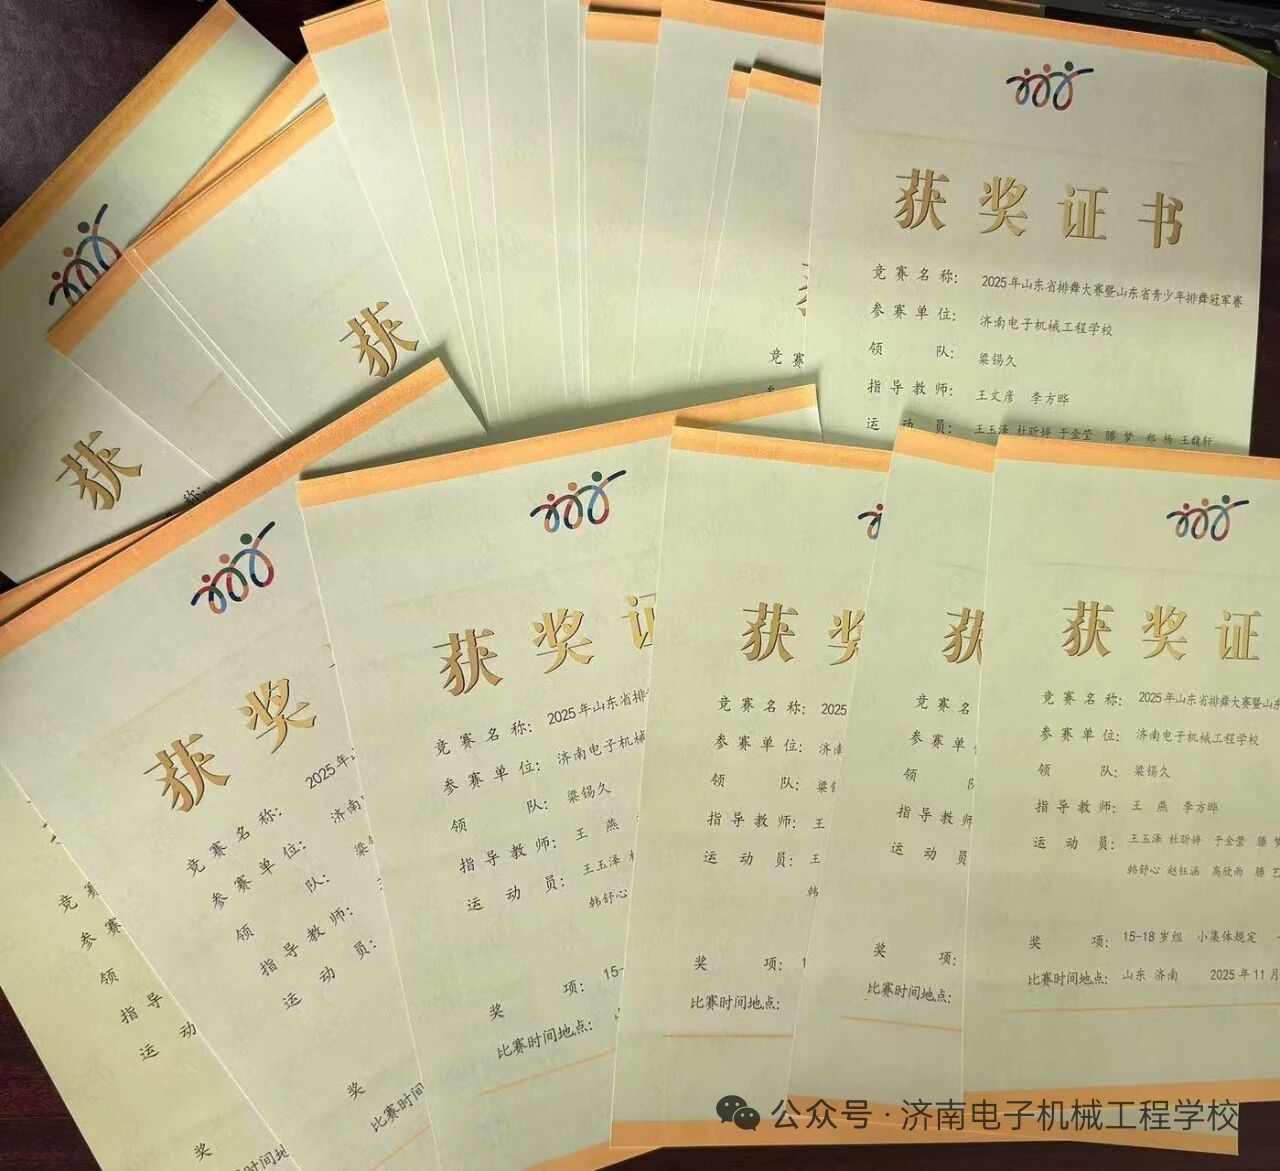 获奖证书
竞赛名称: 2025年山东省排舞大赛暨山东省青少年排舞冠军赛
参赛单位: 济南电子机械工程学校
领 队: 梁锡久
指导教师: 王文彦 李方晔
运动员: 王玉泽 杜昕婷 于金莹 滕梦 郑杨 王馥轩
获
获
竞赛
获奖
竞赛名称: 2025年
参赛单位: 济南
领 队: 梁
指导教师:
运动员:
奖
比赛时间
获奖证
竞赛名称: 2025年山东省排
参赛单位: 济南电子机械
领 队: 梁锡久
指导教师: 王燕
运动员: 王玉泽
韩舒心
奖 项: 15-
比赛时间地点:
获奖
竞赛名称: 2025
参赛单位: 济南
领 队: 梁
指导教师: 王
运动员: 王
韩
奖 项: 1
比赛时间地点:
获
竞赛名
参赛单
领
指导教师
运动员
奖 项:
比赛时间地点:
获奖证
竞赛名称: 2025年山东省排舞大赛暨山东
参赛单位: 济南电子机械工程学校
领 队: 梁锡久
指导教师: 王燕 李方晔
运动员: 王玉泽 杜昕婷 于金莹 滕梦
韩舒心 赵钰涵 高欣雨 滕艺
奖 项: 15-18岁组 小集体规定
比赛时间地点: 山东 济南 2025年11月
竞赛
参赛
领
指导
运动
奖
比赛时间地
公众号·济南电子机械工程学校